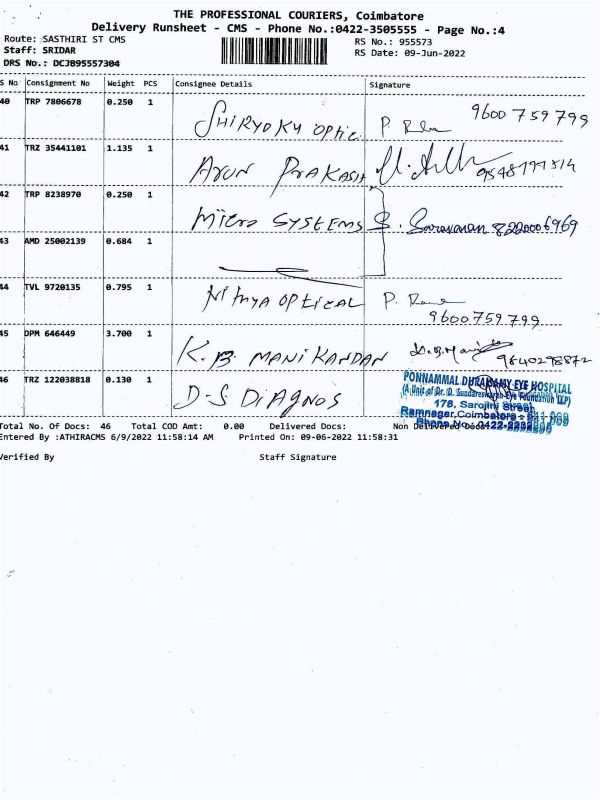 THE PROFESSIONAL COURIERS, Coimbatore
Delivery Runsheet - CMS - Phone No.:0422-3505555 - Page No.:4
Route: SASTHIRI ST CMS RS No.: 955573
Staff: SRIDAR RS Date: 09-Jun-2022
DRS No.: DCJB95557304
S No Consignment No Weight PCS Consignee Details Signature
40 TRP 7806678 0.250 1 SHIRYOKU OPTIC P 9600759799
41 TRZ 35441101 1.135 1 ARUN PRAKASH
42 TRP 8238970 0.250 1 MICRO SYSTEMS S. Saravanan 8220006969
43 AMD 25002139 0.684 1
44 TVL 9720135 0.795 1 Nithya OPtical P.
9600759799
45 DPM 646449 3.700 1 K.B. MANIKANDAN 9840298872
46 TRZ 122038818 0.130 1 D-S DiAgnos
PONNAMMAL DURAISAMY EYE HOSPITAL
(A Unit of Dr. D. Sundareswaran Eye Foundation LLP)
178, Sarojini Street
Ramnagar, Coimbatore -
Phone No.: 0422-
Total No. Of Docs: 46 Total COD Amt: 0.00 Delivered Docs: Non Delivered Docs:
Entered By :ATHIRACMS 6/9/2022 11:58:14 AM Printed On: 09-06-2022 11:58:31
Verified By Staff Signature